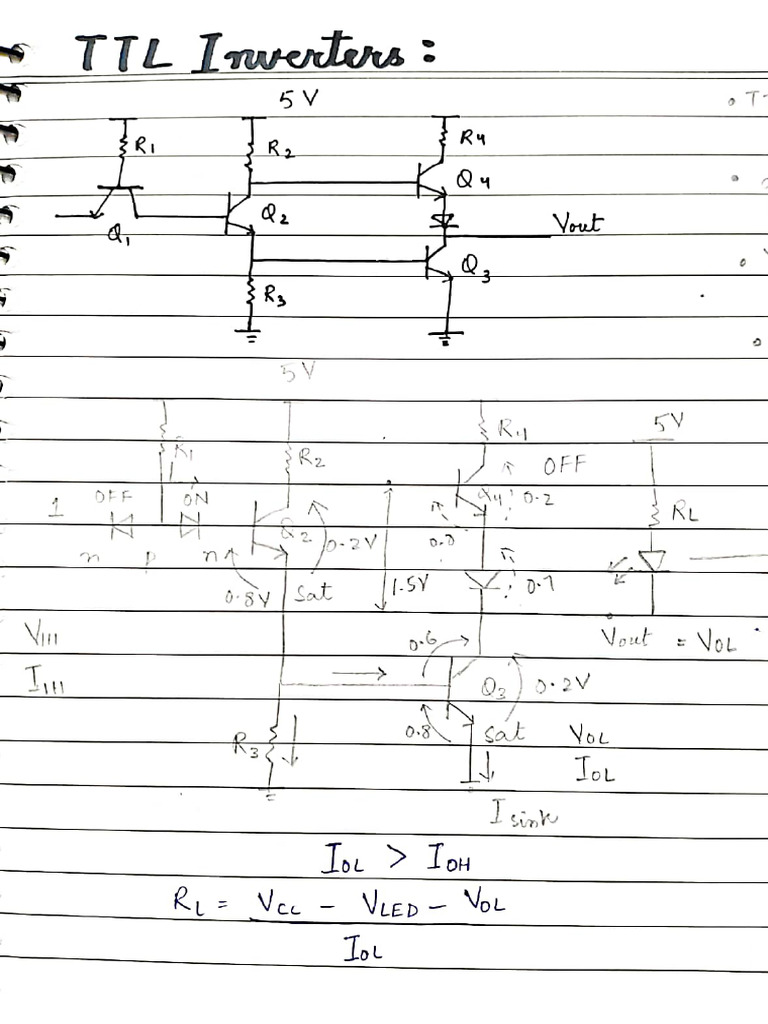 TTL Inverters :
5 V
R1 R2 R4
Q4
Q1 Q2 Vout
Q3
R3
5V
5V
R1 R2 R4 OFF
1 OFF ON Q2 0.2V Q4 0.2 RL
n p n 0.8V sat 1.5V 0.7
VIH 0.6 Vout = VOL
IIH Q3 0.2V
R3 0.8 sat VOL
IOL
I sink
IOL > IOH
RL = VCC - VLED - VOL
IOL